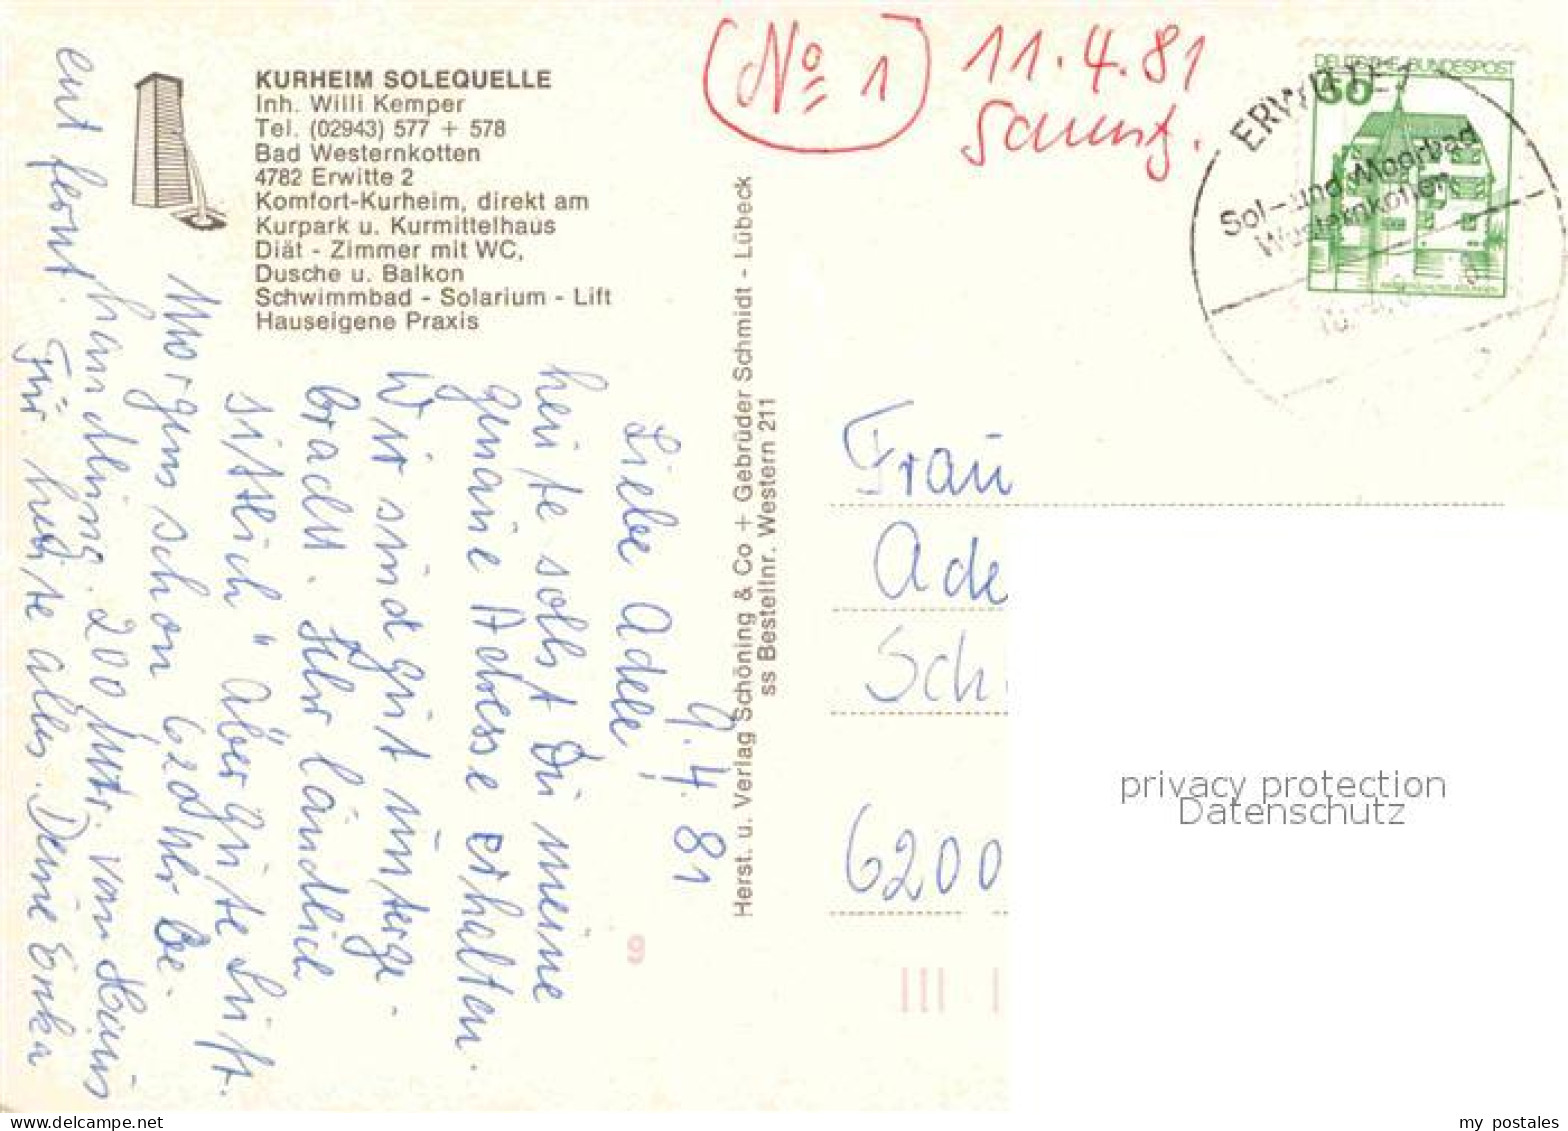 KURHEIM SOLEQUELLE
Inh. Willi Kemper
Tel. (02943) 577 + 578
Bad Westernkotten
4782 Erwitte 2
Komfort-Kurheim, direkt am
Kurpark u. Kurmittelhaus
Diät - Zimmer mit WC,
Dusche u. Balkon
Schwimmbad - Solarium - Lift
Hauseigene Praxis
(No 1)
11.4.81
DEUTSCHE BUNDESPOST
ERWITTE
Sol- und Moorbad
Westernkotten
9.4.81
Liebe Adele!
heute sollst Du meine
genaue Adresse erhalten.
Wir sind gut unterge-
bracht. Sehr ländlich
sittlich" aber gute Luft.
Morgens schon 620 Uhr Be-
handlung. 200 Mtr. vom Haus
entfernt.
Für heute alles. Deine Erika
Herst. u. Verlag Schöning & Co + Gebrüder Schmidt - Lübeck
ss Bestellnr. Western 211
Frau
Ade
Sch
6200
9
privacy protection
Datenschutz
my postales